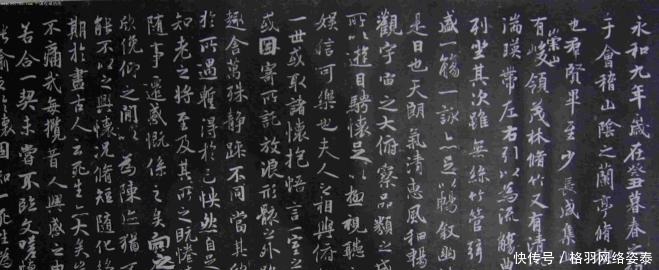 永和九年歲在癸丑暮春之
于會稽山陰之蘭亭脩禊
也群賢畢至少長咸集
有崇山峻領茂林脩竹又有清
湍暎帶左右引以為流觴
列坐其次雖無絲竹管弦
盛一觴一詠亦足以暢敘幽
是日也天朗氣清惠風和暢
觀宇宙之大俯察品類之盛
所以遊目騁懷足以極視聽
娛信可樂也夫人之相與俯
一世或取諸懷抱悟言一室之
或因寄所託放浪形骸之外雖
趣舍萬殊靜躁不同當其
於所遇蹔得於己快然自足
知老之將至及其所之既惓
隨事遷感慨係之矣向之
欣俛仰之間以為陳迹猶不
能不以之興懷況脩短隨化終
期於盡古人云死生亦大矣豈
不痛哉每攬昔人興感之由
若合一契未嘗不臨文嗟悼
喻之於懷固知一死生為
快传号 / 格羽网络姿泰